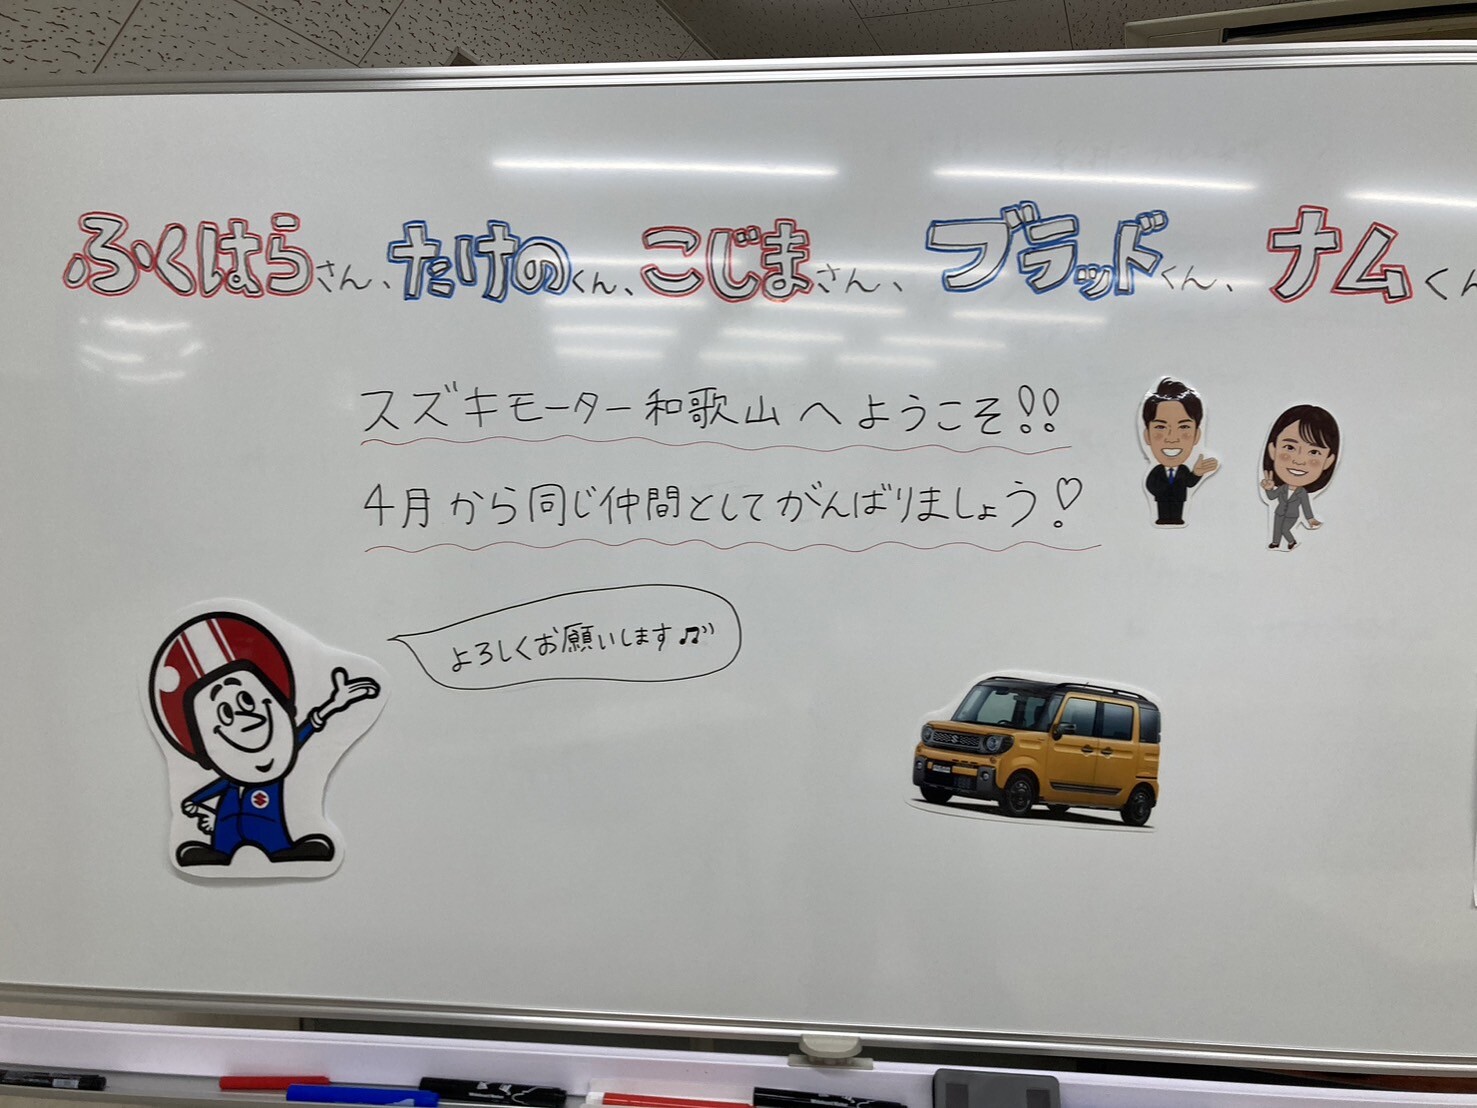 ふくはらさん、たけのくん、こじまさん、ブラッドくん、ナムくん
スズキモーター和歌山へようこそ!!
4月から同じ仲間としてがんばりましょう!
よろしくお願いします♫